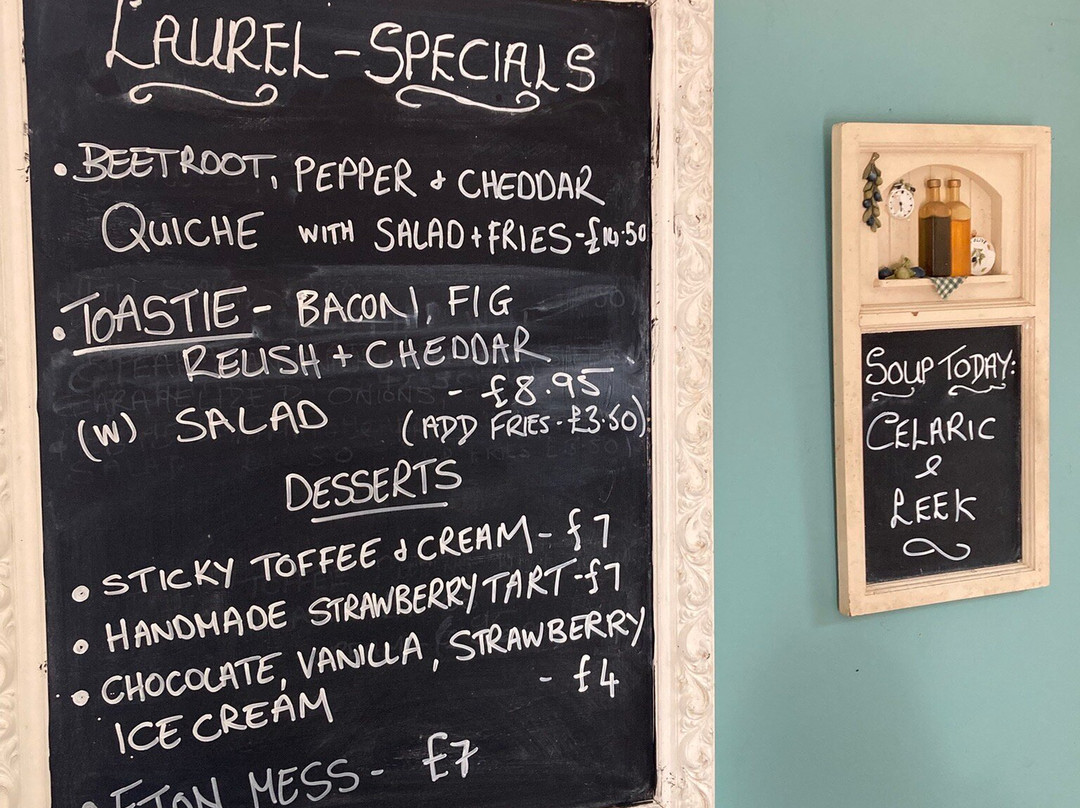 LAUREL - SPECIALS
• BEETROOT, PEPPER & CHEDDAR
QUICHE WITH SALAD + FRIES - £14.50
• TOASTIE - BACON, FIG
RELISH + CHEDDAR
- £8.95
(W) SALAD (ADD FRIES - £3.50)
DESSERTS
• STICKY TOFFEE & CREAM - £7
• HANDMADE STRAWBERRY TART - £7
• CHOCOLATE, VANILLA, STRAWBERRY
ICE CREAM - £4
• ETON MESS - £7
SOUP TODAY:
CELARIC
&
LEEK